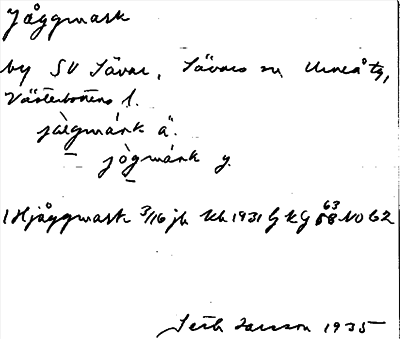 Jåggmark
by SV Sävar, Sävars sn Umeå tg,
Västerbottens l.
jàegmárk ä.
— jògmárk y.
1 Hjåggmark 3/16 jb Kb 1931 G K G 63 68 No 62
Seth Larsson 1935